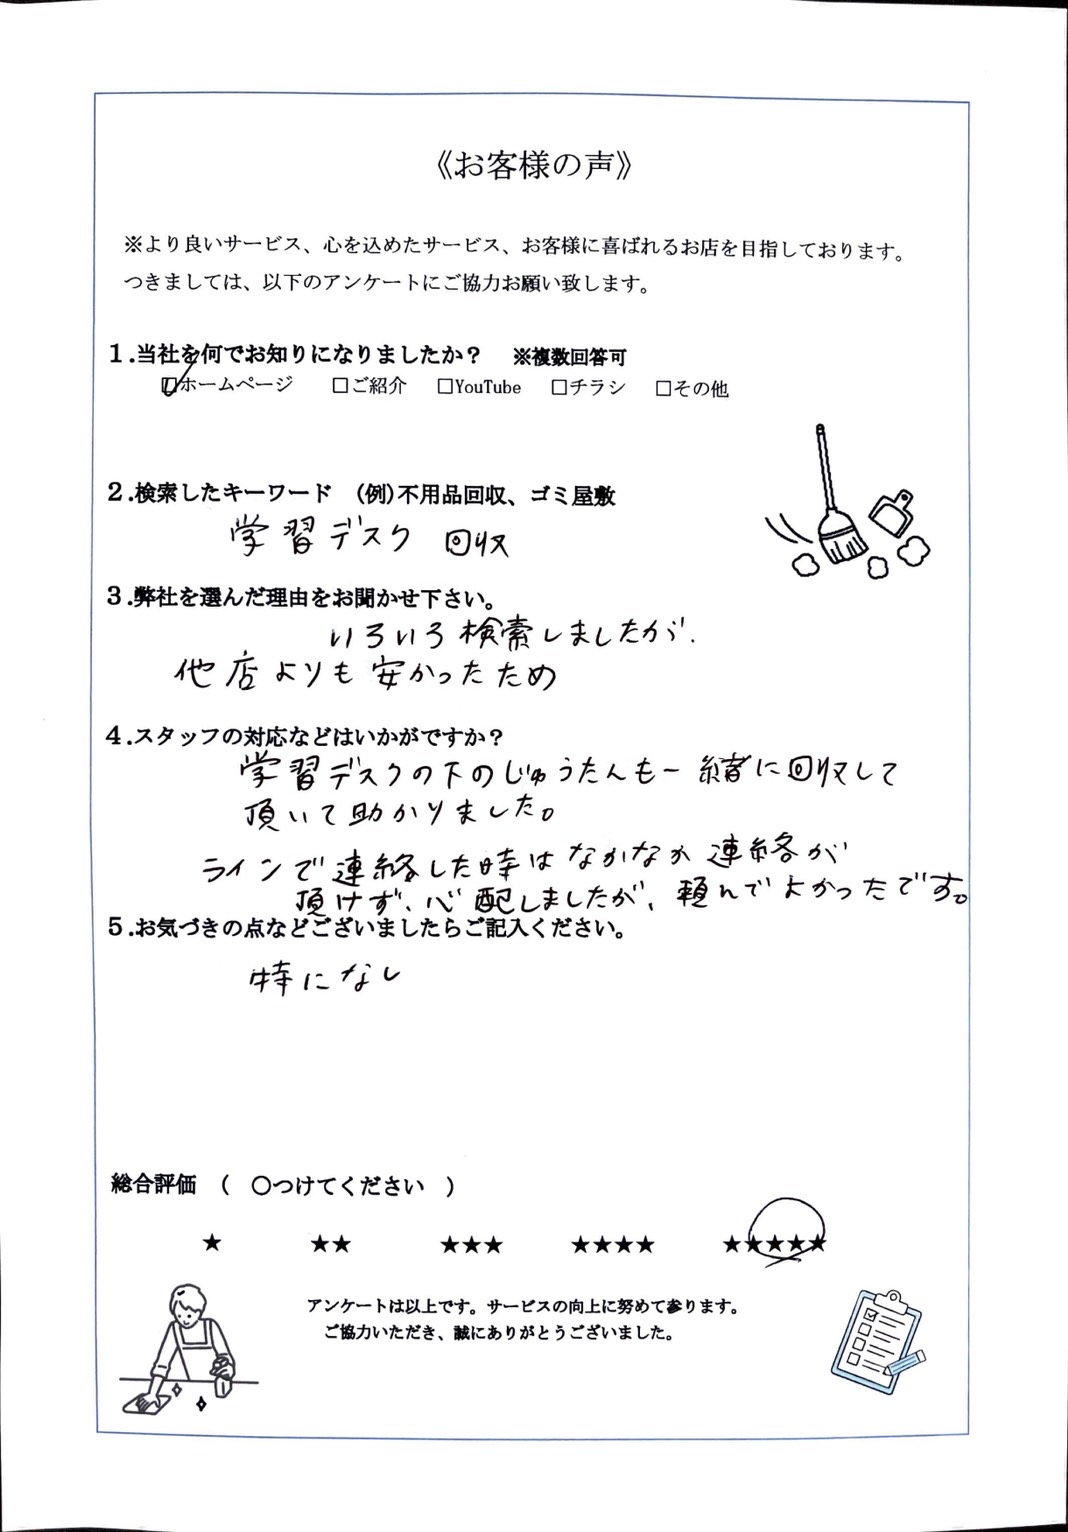 《お客様の声》
※より良いサービス、心を込めたサービス、お客様に喜ばれるお店を目指しております。
つきましては、以下のアンケートにご協力お願い致します。
1.当社を何でお知りになりましたか？　※複数回答可
☑ホームページ　□ご紹介　□YouTube　□チラシ　□その他
2.検索したキーワード　(例)不用品回収、ゴミ屋敷
学習デスク　回収
3.弊社を選んだ理由をお聞かせ下さい。
いろいろ検索しましたが、
他店よりも安かったため
4.スタッフの対応などはいかがですか？
学習デスクの下のじゅうたんも一緒に回収して
頂いて助かりました。
ラインで連絡した時はなかなか連絡が
頂けず、心配しましたが、頼んでよかったです。
5.お気づきの点などございましたらご記入ください。
特になし
総合評価　(　○つけてください　)
★　★★　★★★　★★★★　★★★★★
アンケートは以上です。サービスの向上に努めて参ります。
ご協力いただき、誠にありがとうございました。